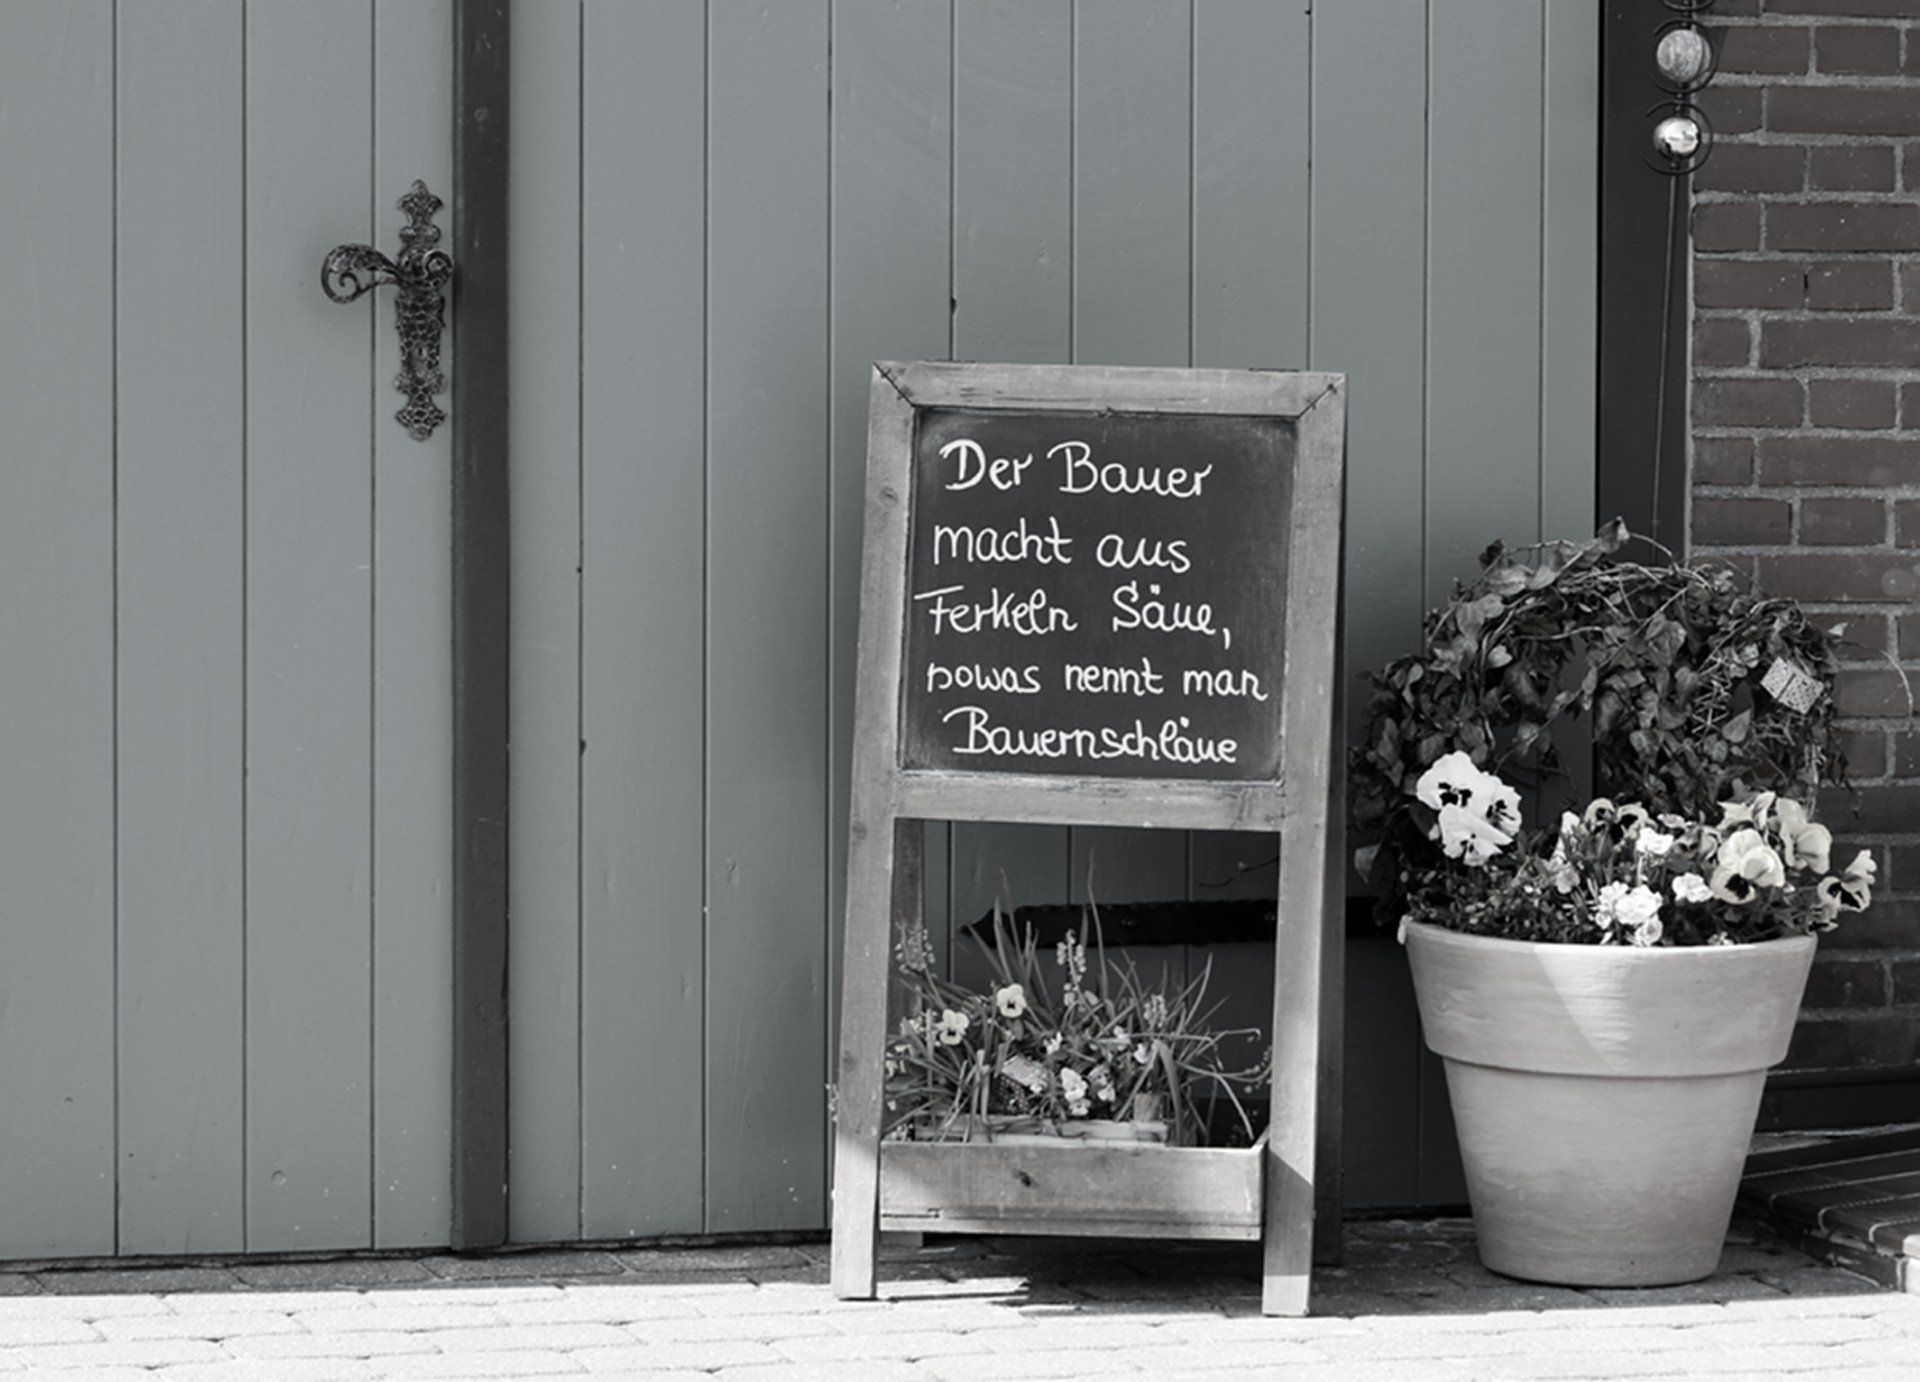 Der Bauer
macht aus
Ferkeln Säue,
sowas nennt man
Bauernschläue